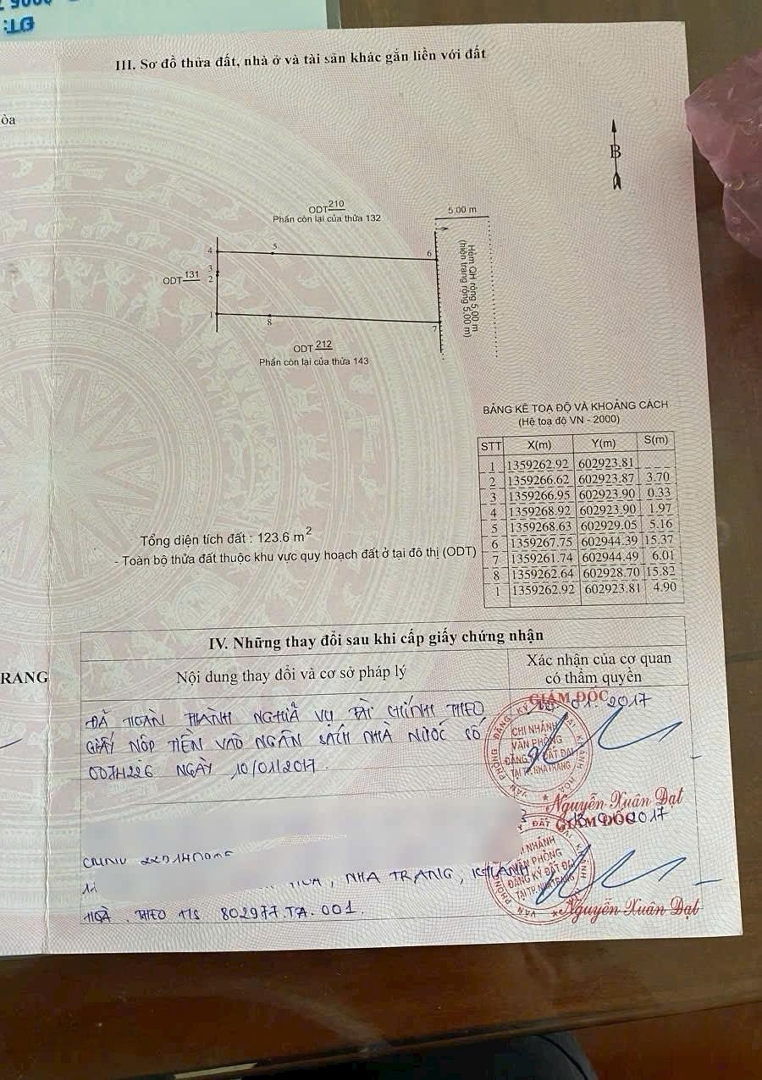 III. Sơ đồ thửa đất, nhà ở và tài sản khác gắn liền với đất
òa
B
ODT 210
Phần còn lại của thửa 132
5.00 m
4
5
6
3
2
ODT 131
1
8
7
Hẻm QH rộng 5,00 m
(hiện trạng rộng 5,00 m)
ODT 212
Phần còn lại của thửa 143
BẢNG KÊ TOẠ ĐỘ VÀ KHOẢNG CÁCH
(Hệ toạ độ VN - 2000)
STT X(m) Y(m) S(m)
1 1359262.92 602923.81
2 1359266.62 602923.87 3.70
3 1359266.95 602923.90 0.33
4 1359268.92 602923.90 1.97
5 1359268.63 602929.05 5.16
6 1359267.75 602944.39 15.37
7 1359261.74 602944.49 6.01
8 1359262.64 602928.70 15.82
1 1359262.92 602923.81 4.90
Tổng diện tích đất : 123.6 m2
- Toàn bộ thửa đất thuộc khu vực quy hoạch đất ở tại đô thị (ODT)
IV. Những thay đổi sau khi cấp giấy chứng nhận
RANG
Nội dung thay đổi và cơ sở pháp lý
Xác nhận của cơ quan
có thẩm quyền
ĐÃ HOÀN THÀNH NGHĨA VỤ TÀI CHÍNH THEO
GIẤY NỘP TIỀN VÀO NGÂN SÁCH NHÀ NƯỚC SỐ
NGÀY 10/01/2017.
GIÁM ĐỐC
01.2017
CHI NHÁNH
VĂN PHÒNG
ĐĂNG KÝ ĐẤT ĐAI
TẠI TP.NHA TRANG
Nguyễn Xuân Đạt
GIÁM ĐỐC
2017
NHÁNH
VĂN PHÒNG
ĐĂNG KÝ ĐẤT ĐAI
TẠI TP.NHA TRANG
, NHA TRANG, KHÁNH
HOÀ. THEO HS 802977.TA.001.
Nguyễn Xuân Đạt